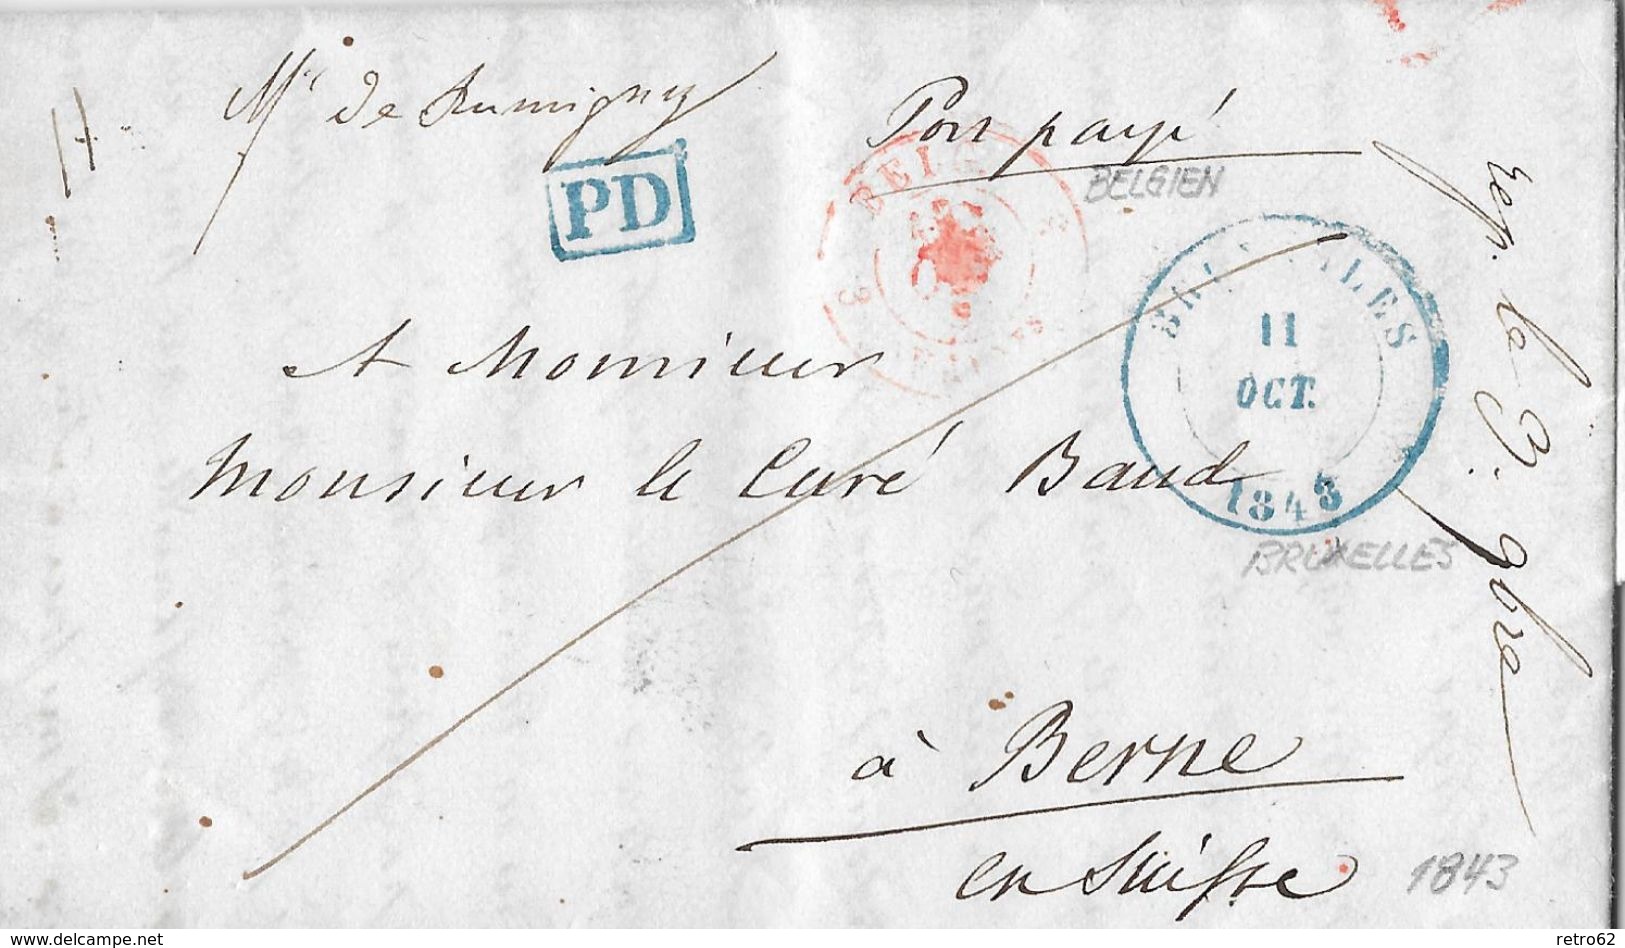 Mr de Rumigny
Port payé
PD
BELG
BELGIEN
BRUXELLES
11
OCT.
1843
BRUXELLES
A Monsieur
Monsieur le Curé Baud
à Berne
en Suisse
1843
rep. le 3. 9bre
www.delcampe.net
retro62